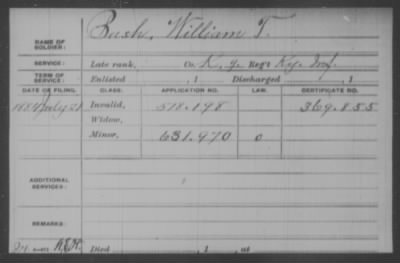 NAME OF SOLDIER: Bush, William T.
SERVICE: Late rank, Co. K, Reg't Ky. Inf.
TERM OF SERVICE: Enlisted , 1 Discharged , 1
DATE OF FILING. CLASS. APPLICATION NO. LAW. CERTIFICATE NO.
1884 July 21 Invalid, 518.198 369.855
Widow,
Minor, 631.970 0
ADDITIONAL SERVICES:
REMARKS:
Died , 1 , at